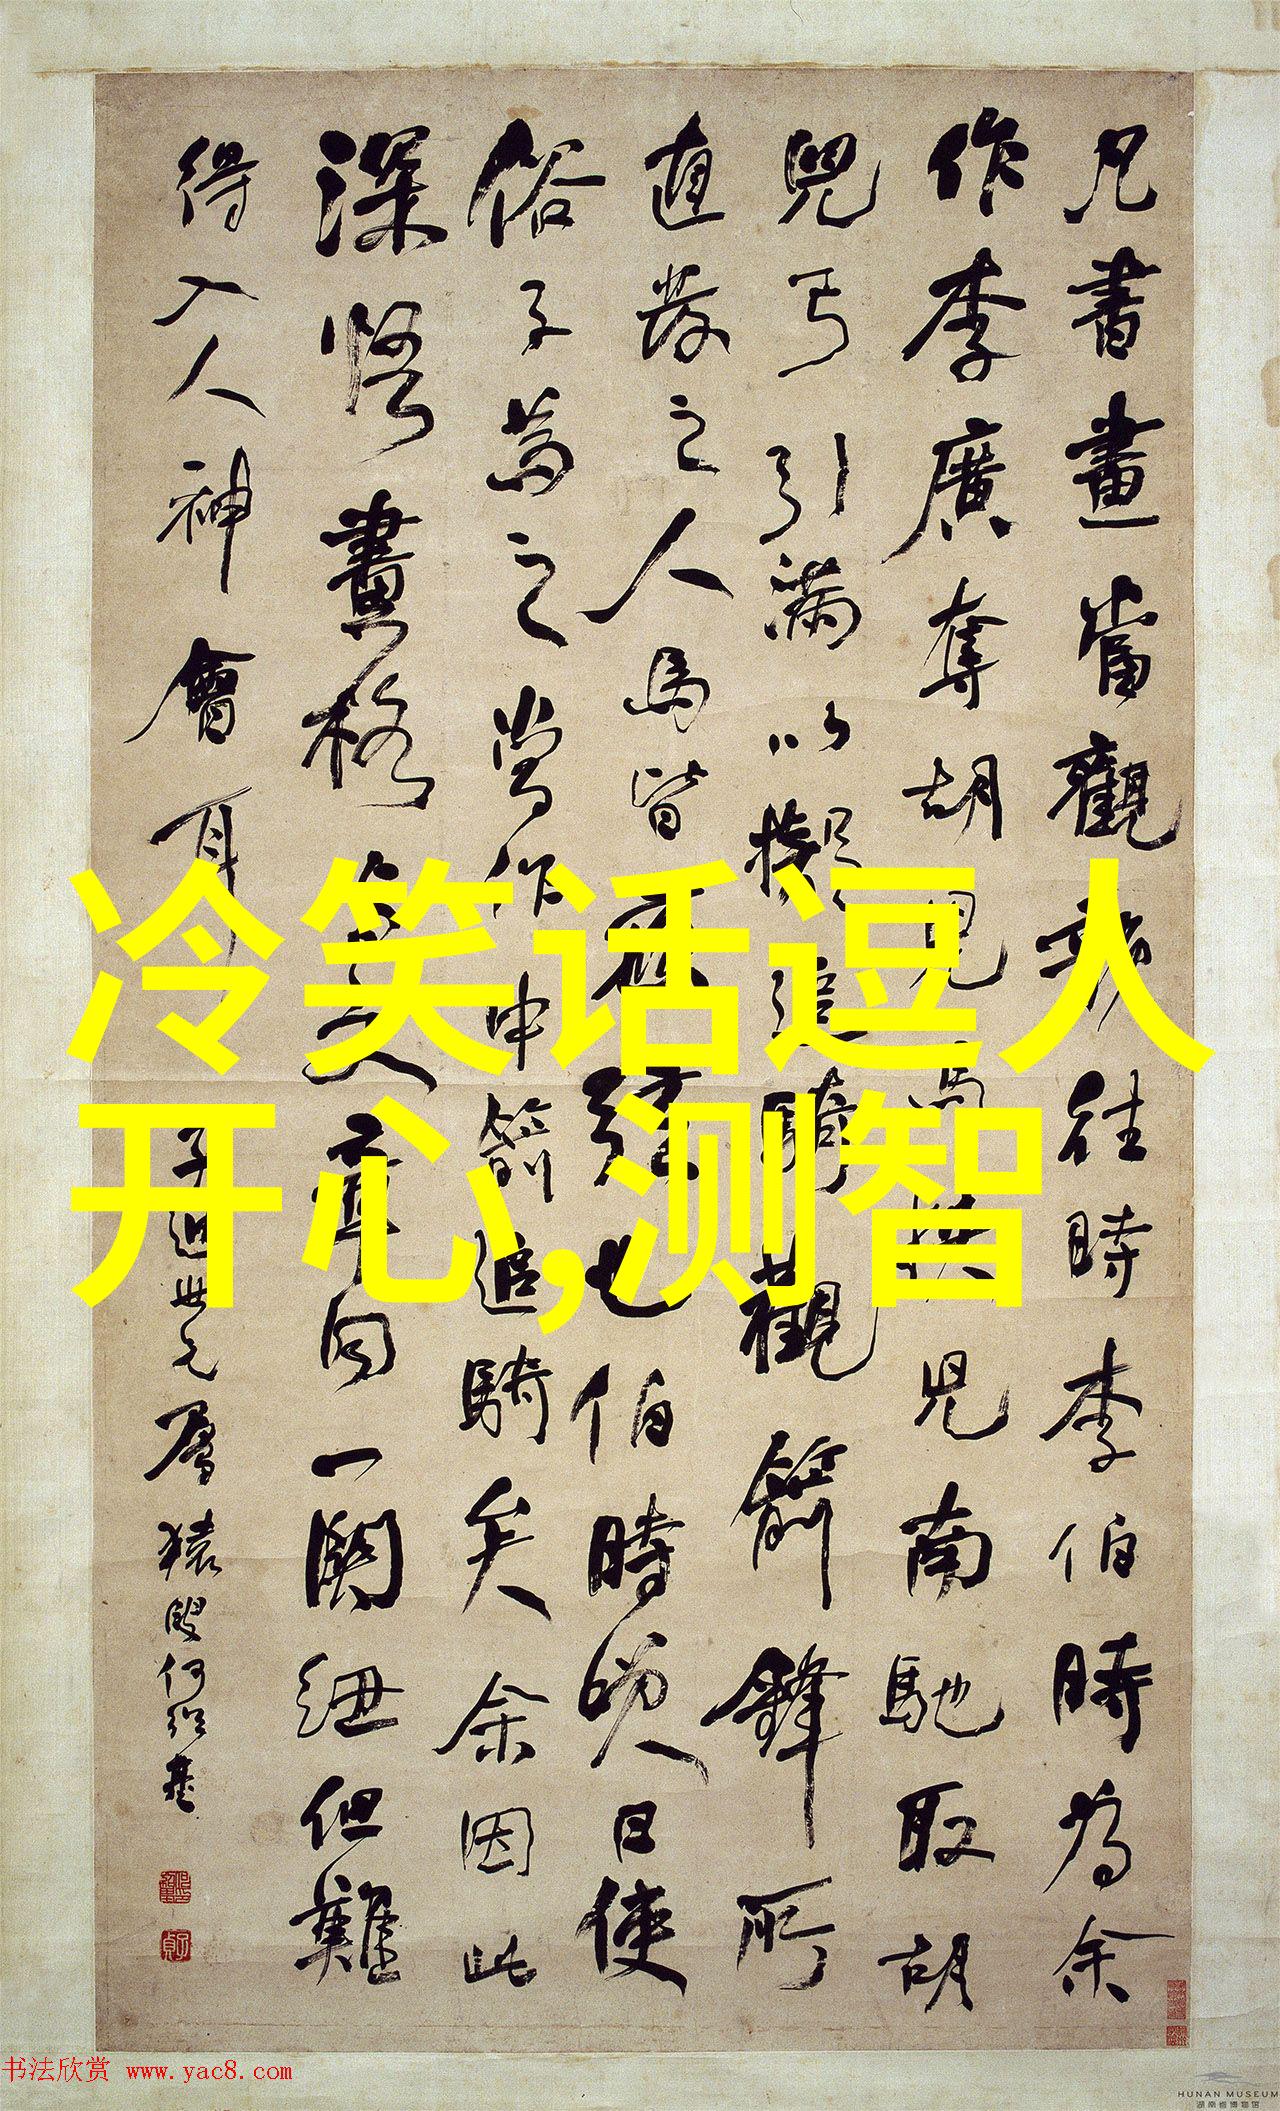 凡書畫當觀韻往時李伯時為余
作李廣奪胡兒馬挾兒南馳取胡
兒弓引滿以擬追騎觀箭鋒所
直發之人馬皆應弦也伯時笑曰使
俗子為之當作中箭追騎矣余因此
深悟畫格與文章同一關紐但難
得入人神會耳
子迪世元屬 猿叟何紹基
冷笑话逗人
开心,测智
书法欣赏 www.yac8.com
HUNAN MUSEUM
湖南省博物馆